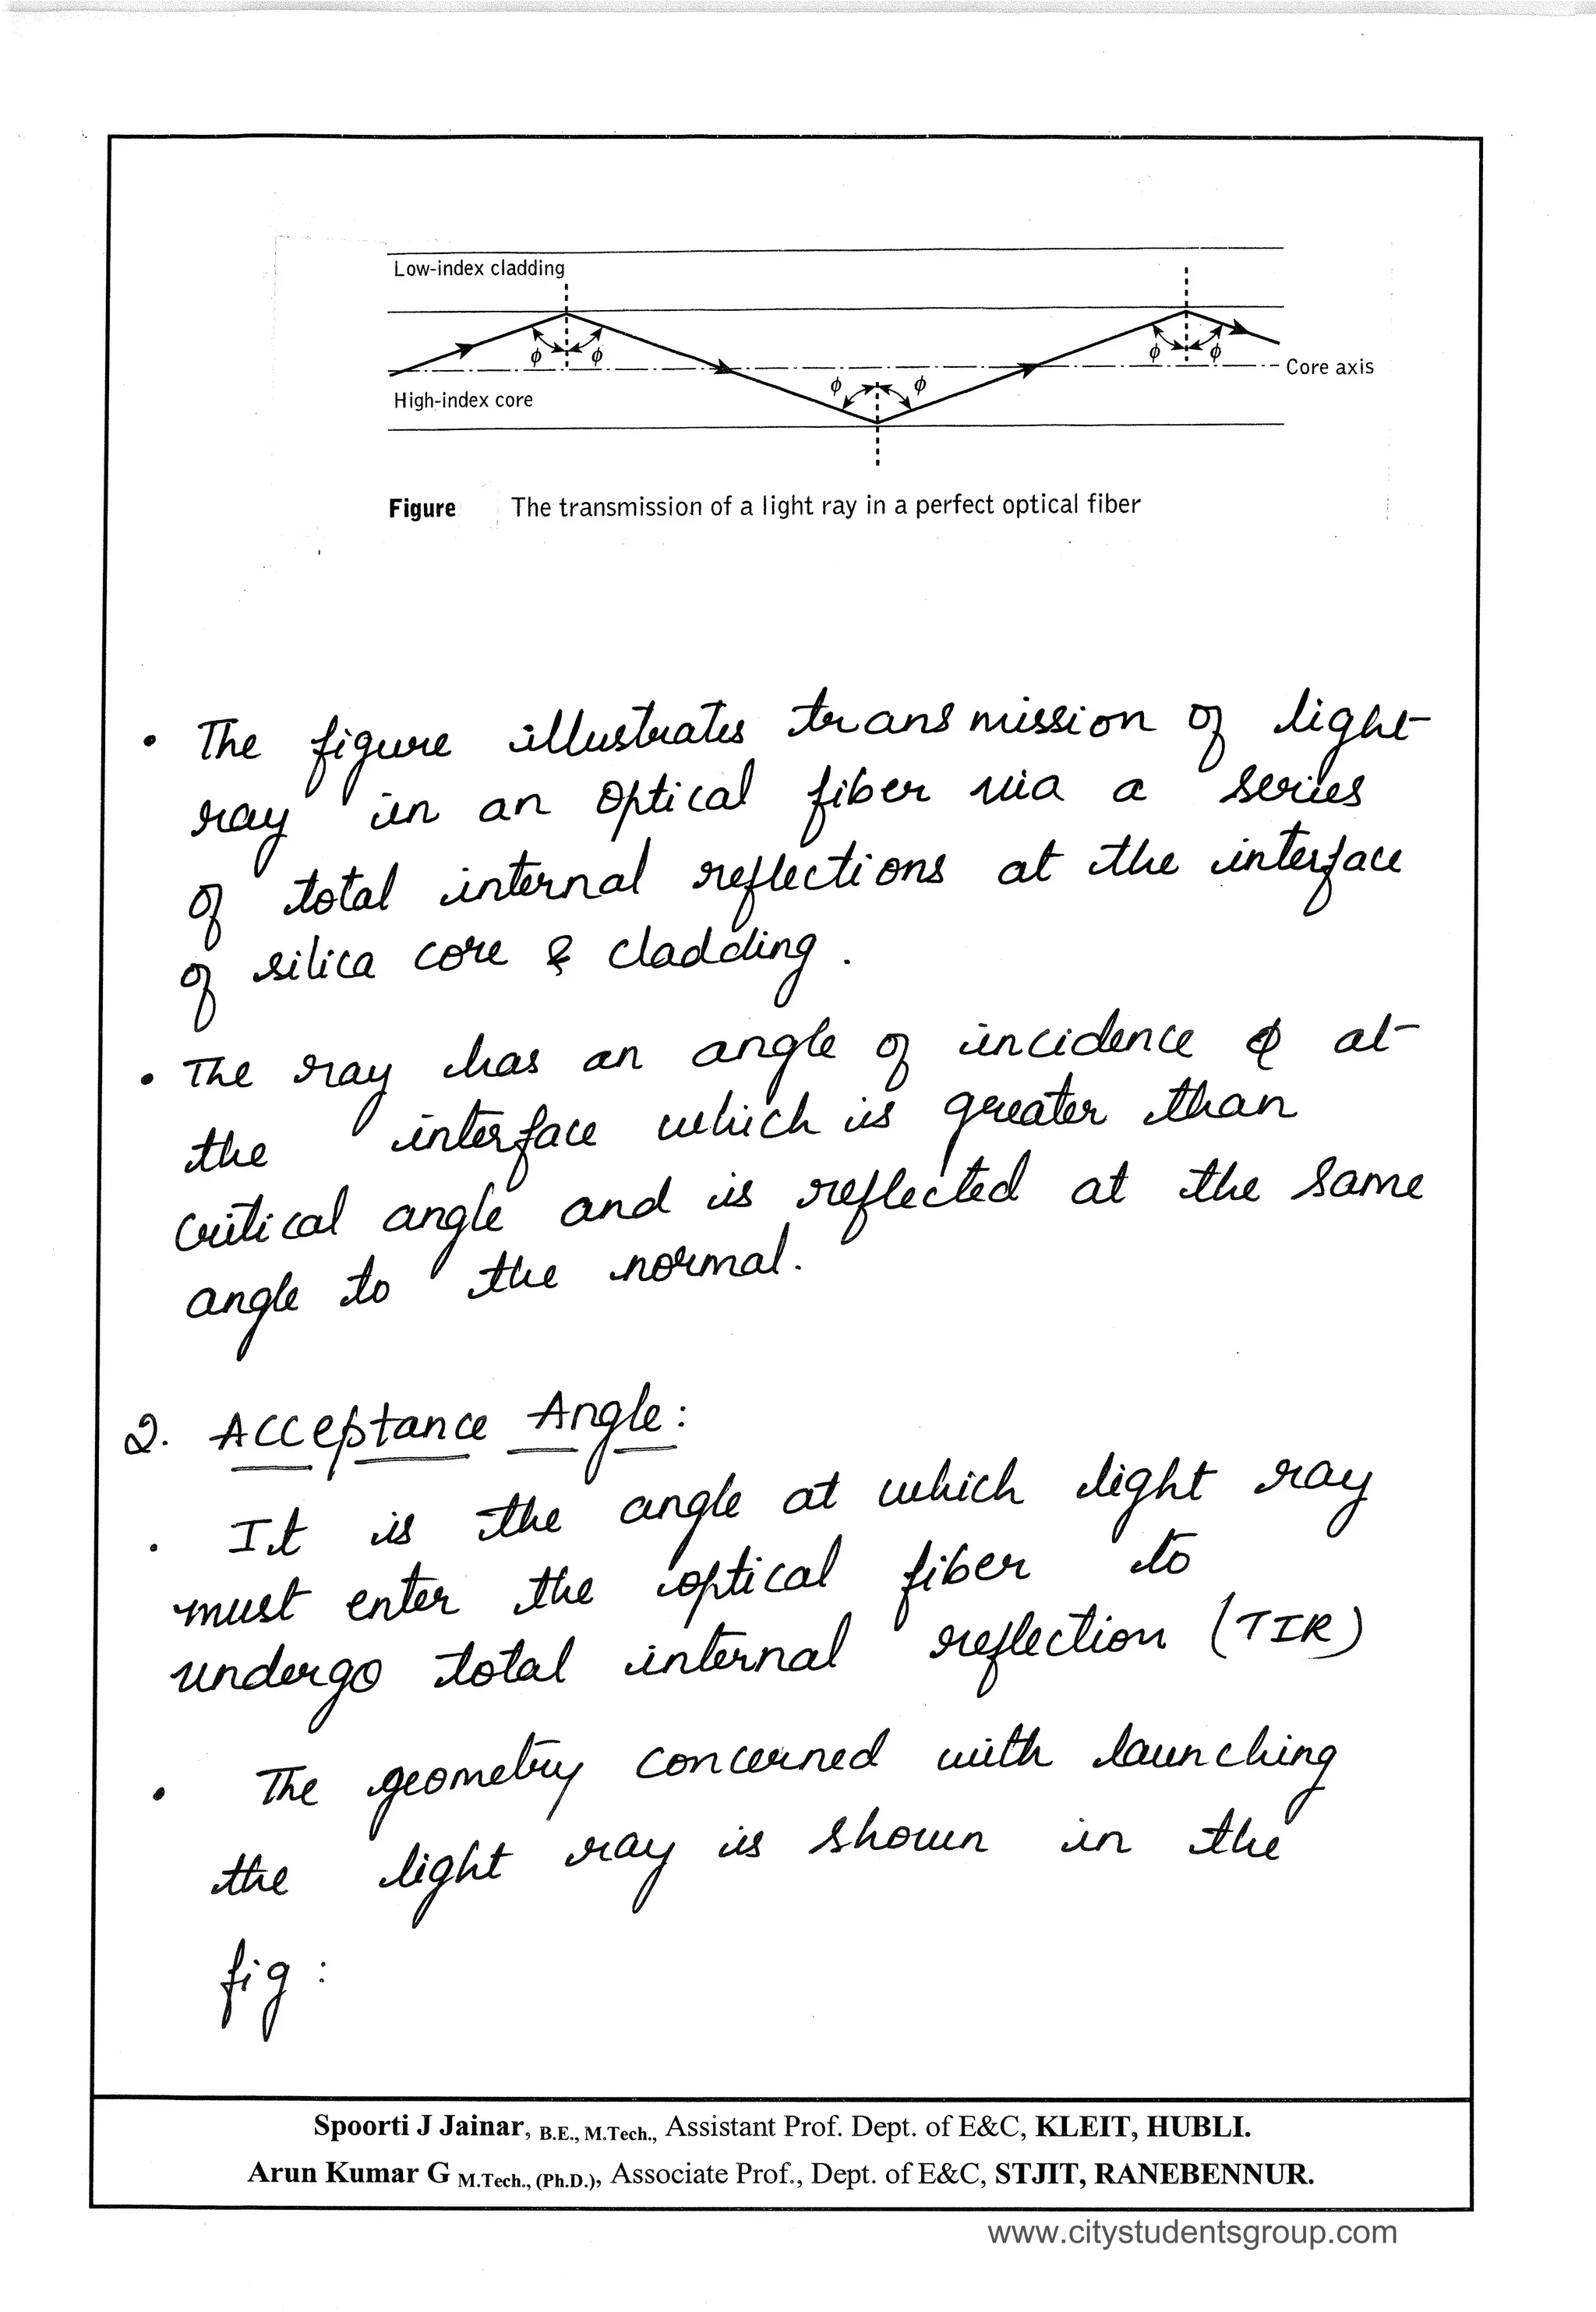 Low-index cladding
ϕ ϕ
ϕ ϕ
Core axis
ϕ ϕ
High-index core
Figure The transmission of a light ray in a perfect optical fiber
• The figure illustrates transmission of light
ray in an optical fiber via a series
of total internal reflections at the interface
of silica core & cladding.
• The ray has an angle of incidence ϕ at
the interface which is greater than
critical angle and is reflected at the same
angle to the normal.
2. Acceptance Angle:
• It is the angle at which light ray
must enter the optical fiber to
undergo total internal reflection (TIR)
• The geometry concerned with launching
the light ray is shown in the
fig:
Spoorti J Jainar, B.E., M.Tech., Assistant Prof. Dept. of E&C, KLEIT, HUBLI.
Arun Kumar G M.Tech., (Ph.D.), Associate Prof., Dept. of E&C, STJIT, RANEBENNUR.
www.citystudentsgroup.com